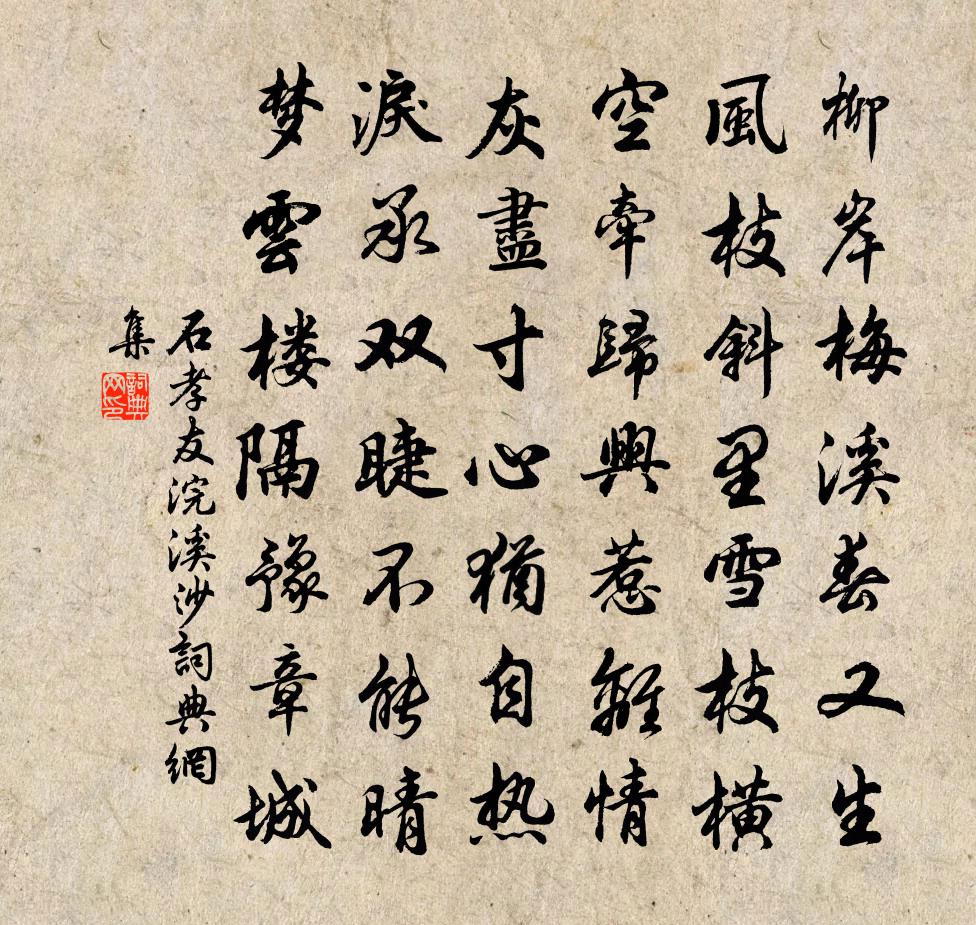 柳岸梅溪春又生
風枝斜里雪枝橫
空牽歸興惹離情
灰盡寸心猶自热
淚承双睫不能晴
梦雲楼隔豫章城
石孝友浣溪沙詞典網
集
詞典网印